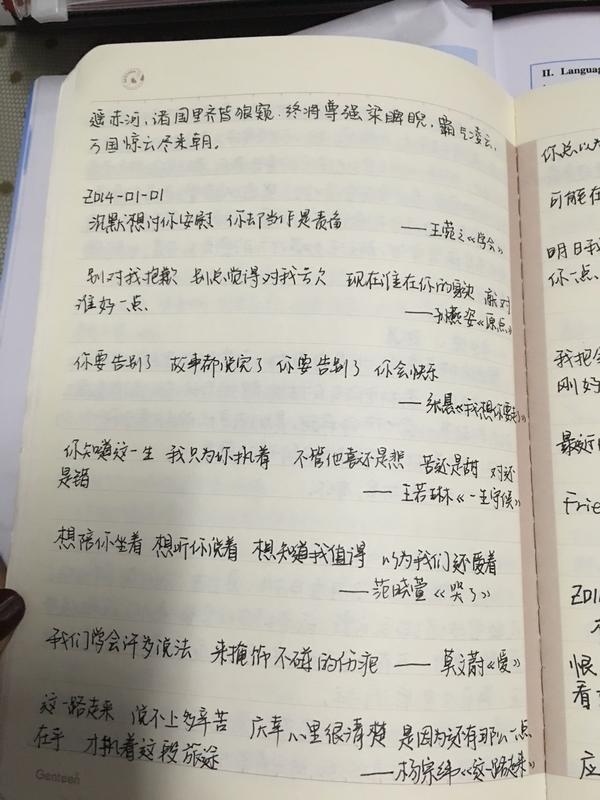 遥赤河,诸国里齐皆狼窥.终将尊强梁睥睨,霸气凌云,
万国惊云尽来朝。
2014-01-01
沉默想讨你安慰 你却当作是责备
——王菀之《学会》
别对我抱歉 别总觉得对我亏欠 现在谁在你的身边 敬对
谁好一点
——孙燕姿《原点》
你要告别了 故事都说完了 你要告别了 你会快乐
——张悬《我想你要走》
你知道这一生 我只为你执着 不管他喜还是悲 苦还是甜 对还
是错
——王若琳《一生守候》
想陪你坐着 想听你说着 想知道我值得 以为我们还爱着
——范晓萱《哭了》
我们学会许多说法 来掩饰不碰的伤痕 ——莫文蔚《爱》
这一路走来 说不上多辛苦 庆幸心里很清楚 是因为还有那么一点
在乎 才执着这段旅途
——杨宗纬《这一路走来》
Genteen
II. Languag
你总以为
可能在
明日我
你一点
我把
刚好
最近
Frie
201
恨
看
应